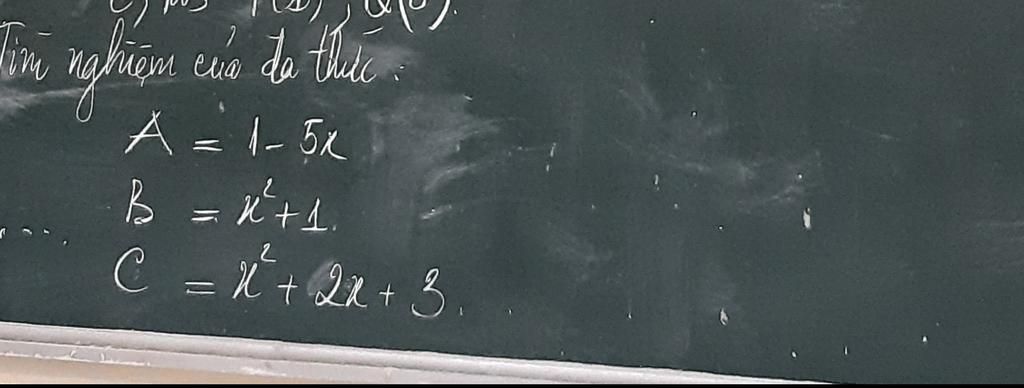 Tìm nghiệm của đa thức :
A = 1 - 5x
B = x² + 1.
C = x² + 2x + 3.